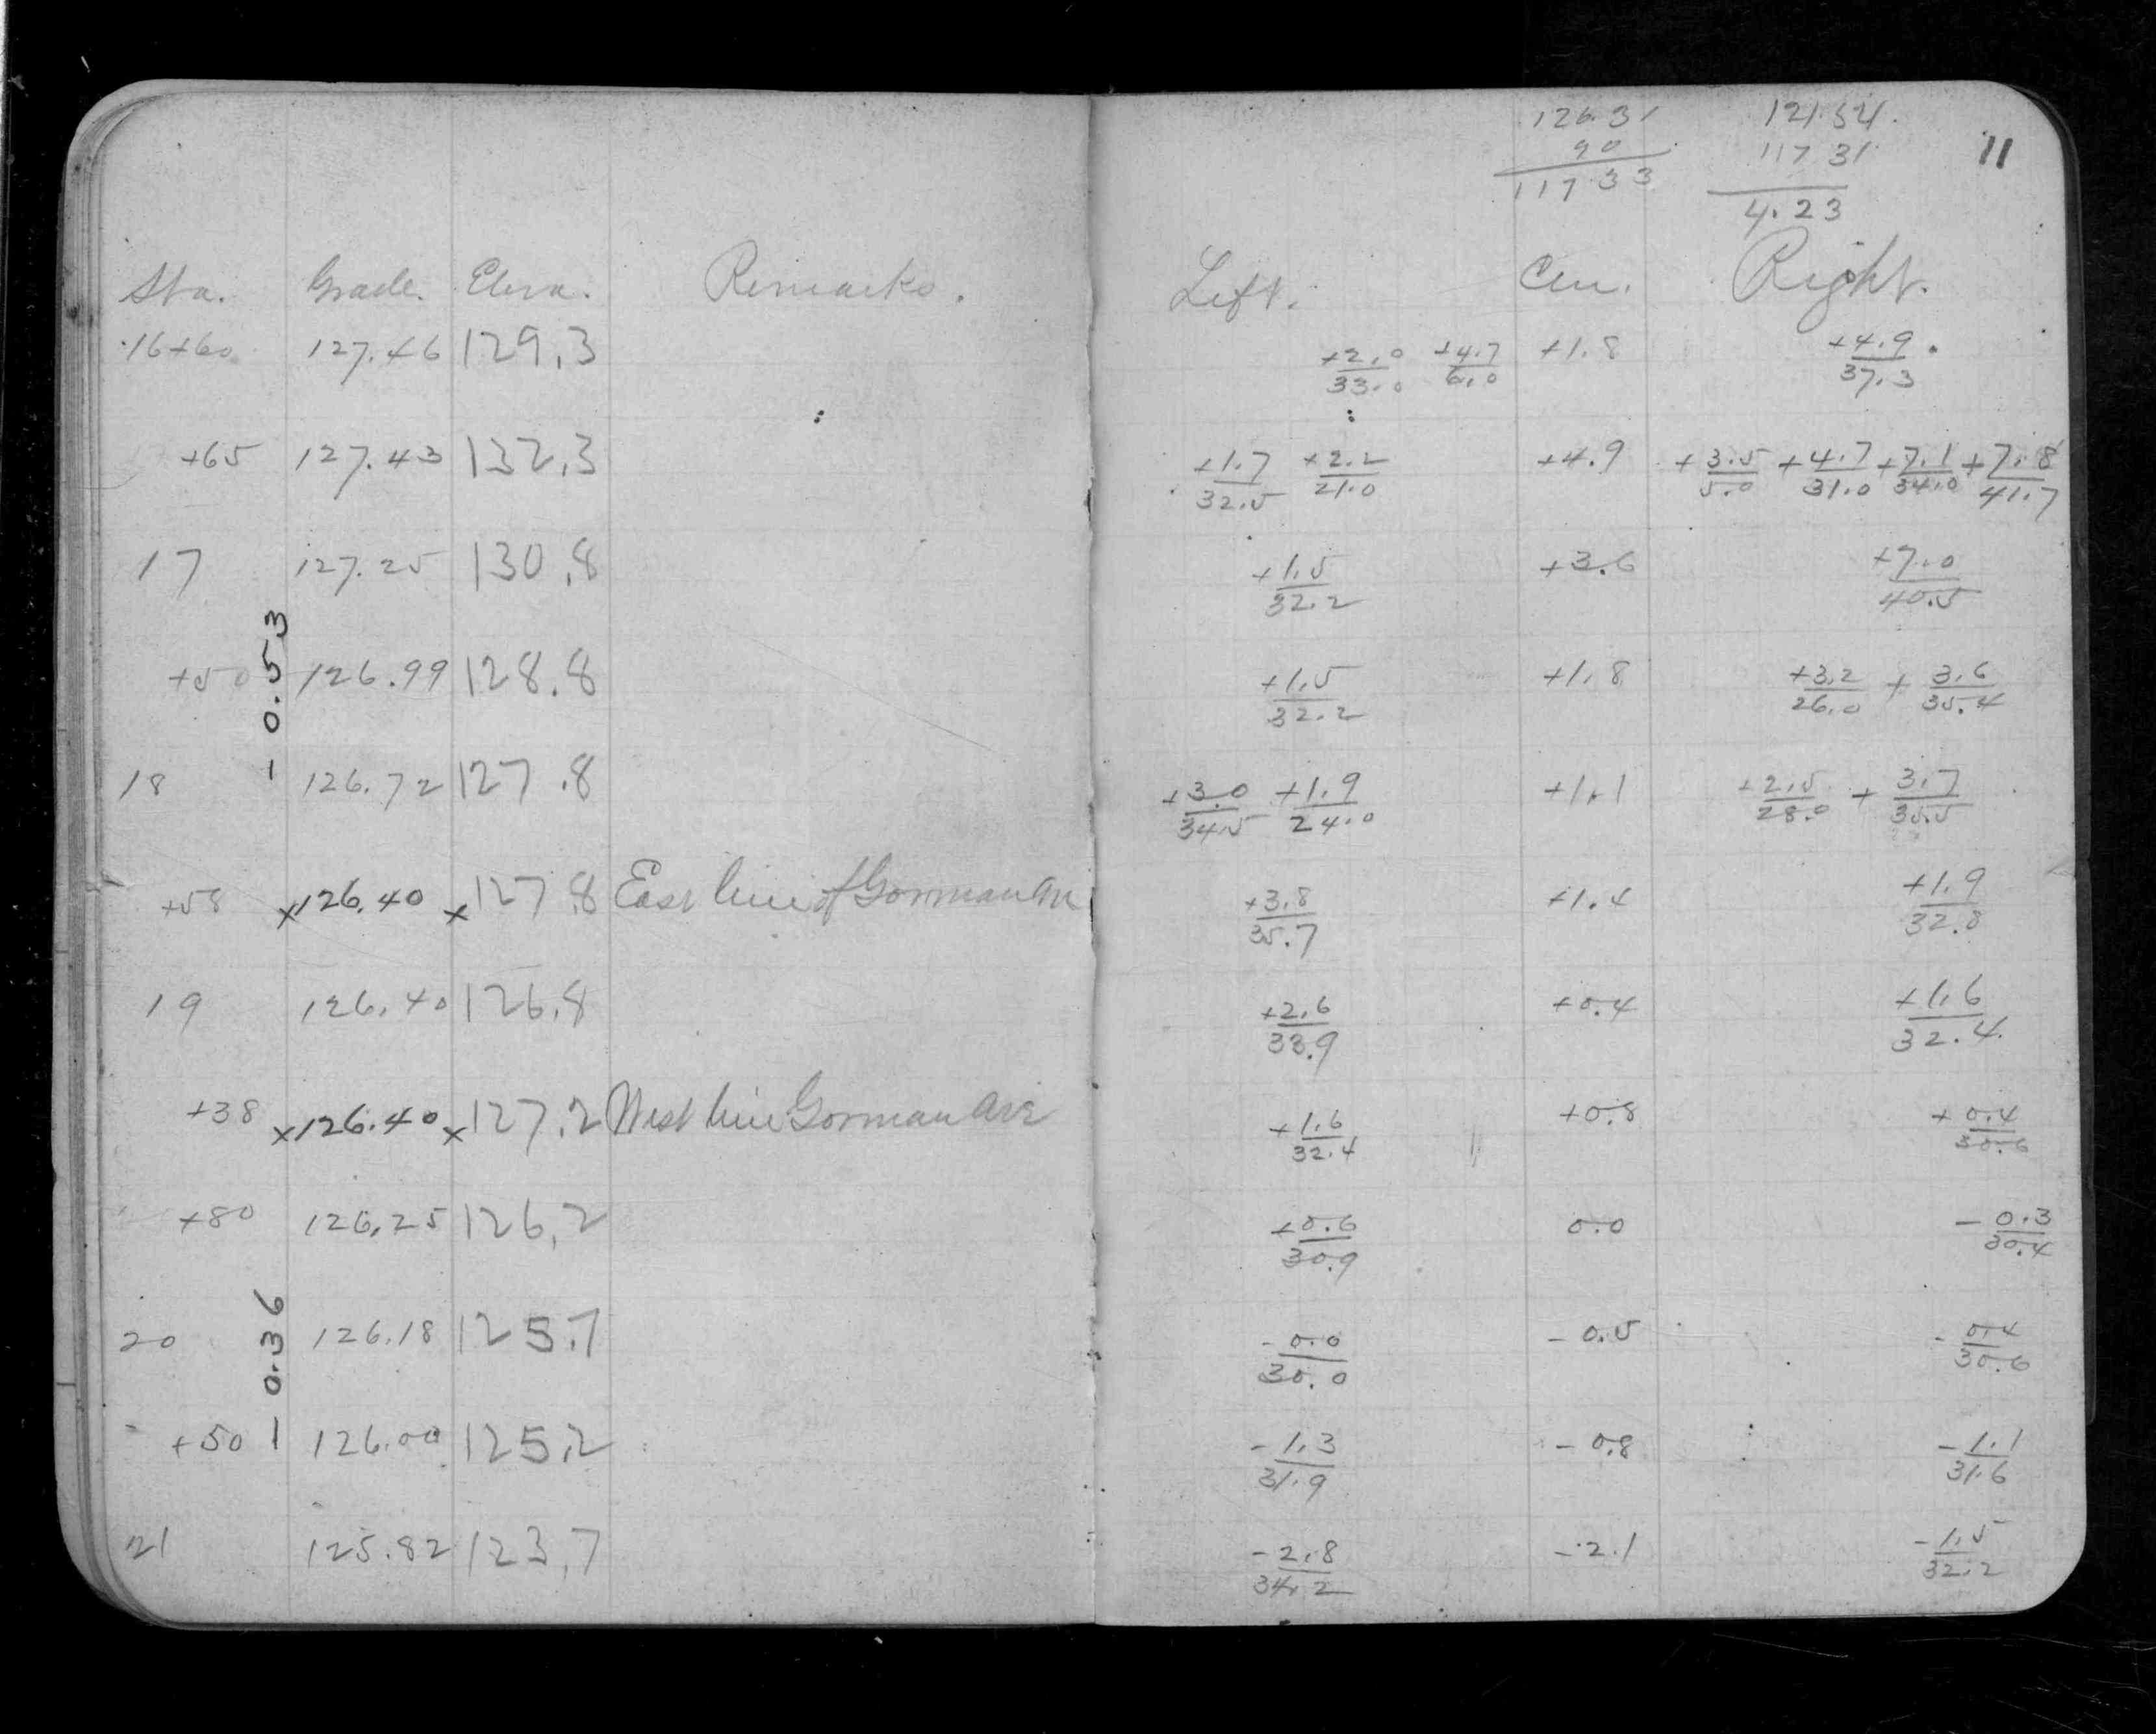 126.31 121.54
90 117 31 11
117 33 4.23
Sta. Grade. Elева. Remarks. Left. Cen. Right.
16+60 127.46 129.3 +2.0/33.0 +4.7/6.0 +1.8 +4.9/37.3
+65 127.43 132.3 +1.7/32.5 +2.2/21.0 +4.9 +3.5/5.0 +4.7/31.0 +7.1/34.0 +7.8/41.7
17 127.25 130.8 +1.5/32.2 +3.6 +7.0/40.5
- 0.53
+50 126.99 128.8 +1.5/32.2 +1.8 +3.2/26.0 +3.6/35.4
18 126.72 127.8 +3.0/34.5 +1.9/24.0 +1.1 +2.5/28.0 +3.7/35.5
+58 x126.40 x127.8 East line of Gorman Av +3.8/35.7 +1.4 +1.9/32.8
19 126.40 126.8 +2.6/33.9 +0.4 +1.6/32.4
+38 x126.40 x127.2 West line Gorman Ave +1.6/32.4 +0.8 +0.4/30.6
+80 126.25 126.2 +0.6/30.9 0.0 -0.3/30.4
20 126.18 125.7 -0.0/30.0 -0.5 -0.4/30.6
- 0.36
+50 126.00 125.2 -1.3/31.9 -0.8 -1.1/31.6
21 125.82 123.7 -2.8/34.2 -2.1 -1.5/32.2